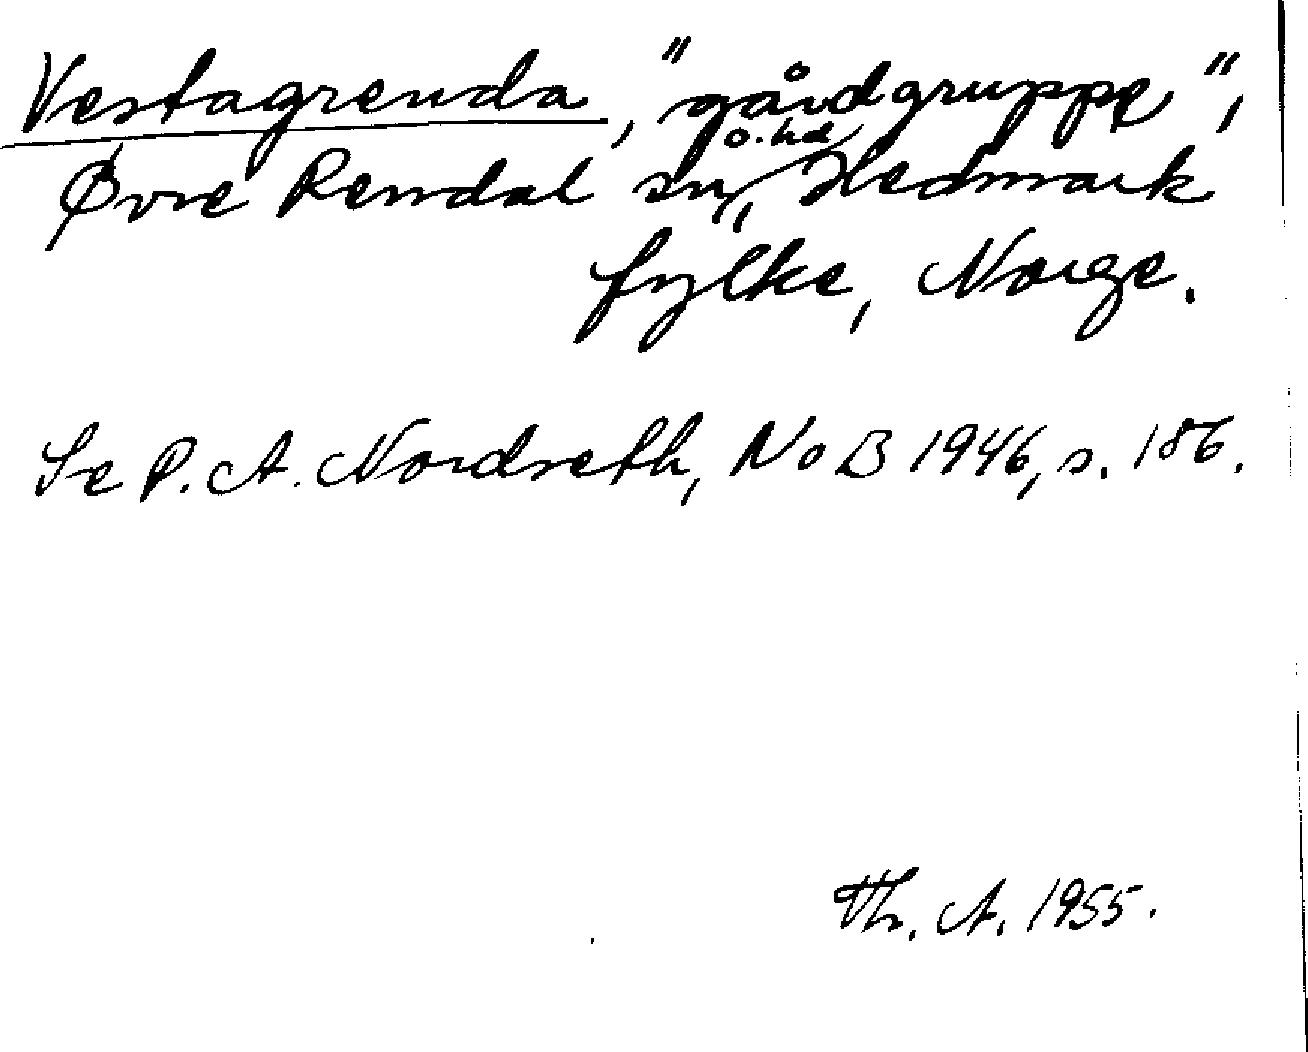 Vestagrenda, "gårdgruppe",
Øvre Rendal sn o. hd, Hedmark
fylke, Norge.
Se P. A. Nordseth, NoB 1946, s. 186.
Th. A. 1955.